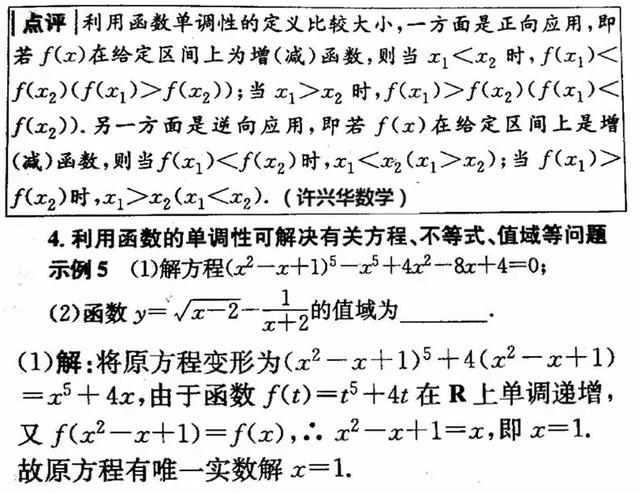 点评 利用函数单调性的定义比较大小,一方面是正向应用,即
若 f(x)在给定区间上为增(减)函数,则当 x₁<x₂ 时,f(x₁)<
f(x₂)(f(x₁)>f(x₂));当 x₁>x₂ 时,f(x₁)>f(x₂)(f(x₁)<
f(x₂)).另一方面是逆向应用,即若 f(x)在给定区间上是增
(减)函数,则当f(x₁)<f(x₂)时,x₁<x₂(x₁>x₂);当 f(x₁)>
f(x₂)时,x₁>x₂(x₁<x₂).(许兴华数学)
4.利用函数的单调性可解决有关方程、不等式、值域等问题
示例5 (1)解方程(x²-x+1)⁵-x⁵+4x²-8x+4=0;
(2)函数 y=√(x-2)-1/(x+2)的值域为______.
(1)解:将原方程变形为(x²-x+1)⁵+4(x²-x+1)
=x⁵+4x,由于函数 f(t)=t⁵+4t 在 R 上单调递增,
又 f(x²-x+1)=f(x),∴ x²-x+1=x,即 x=1.
故原方程有唯一实数解 x=1.